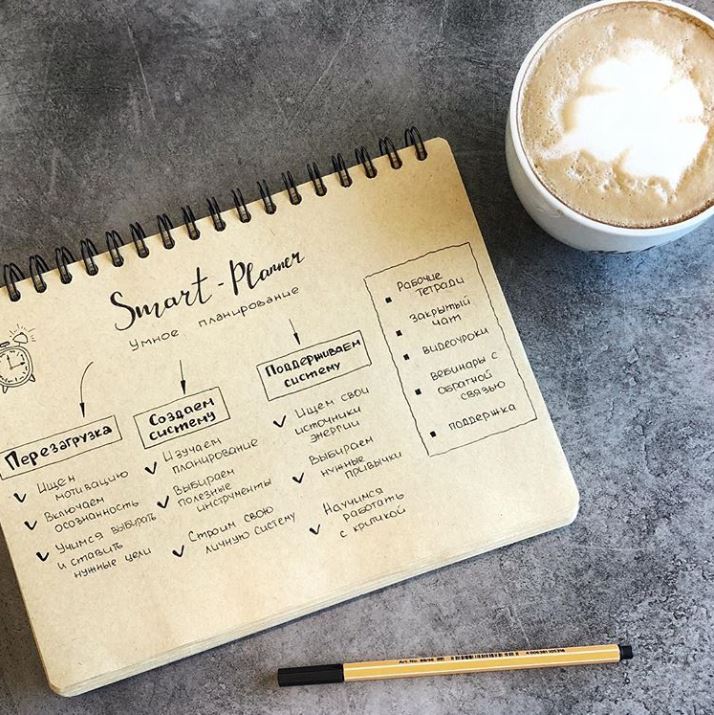 Smart-Planner
Умное планирование
Перезагрузка
Ищем
мотивацию
Включаем
осознанность
Учимся выбирать
и ставить
нужные цели
Создаем
систему
Изучаем
планирование
Выбираем
полезные
инструменты
Строим свою
личную систему
Поддерживаем
систему
Ищем свои
источники
энергии
Выбираем
нужные
привычки
Научимся
работать
с критикой
Рабочие
тетради
закрытый
чат
видеоуроки
вебинары с
обратной
связью
поддержка